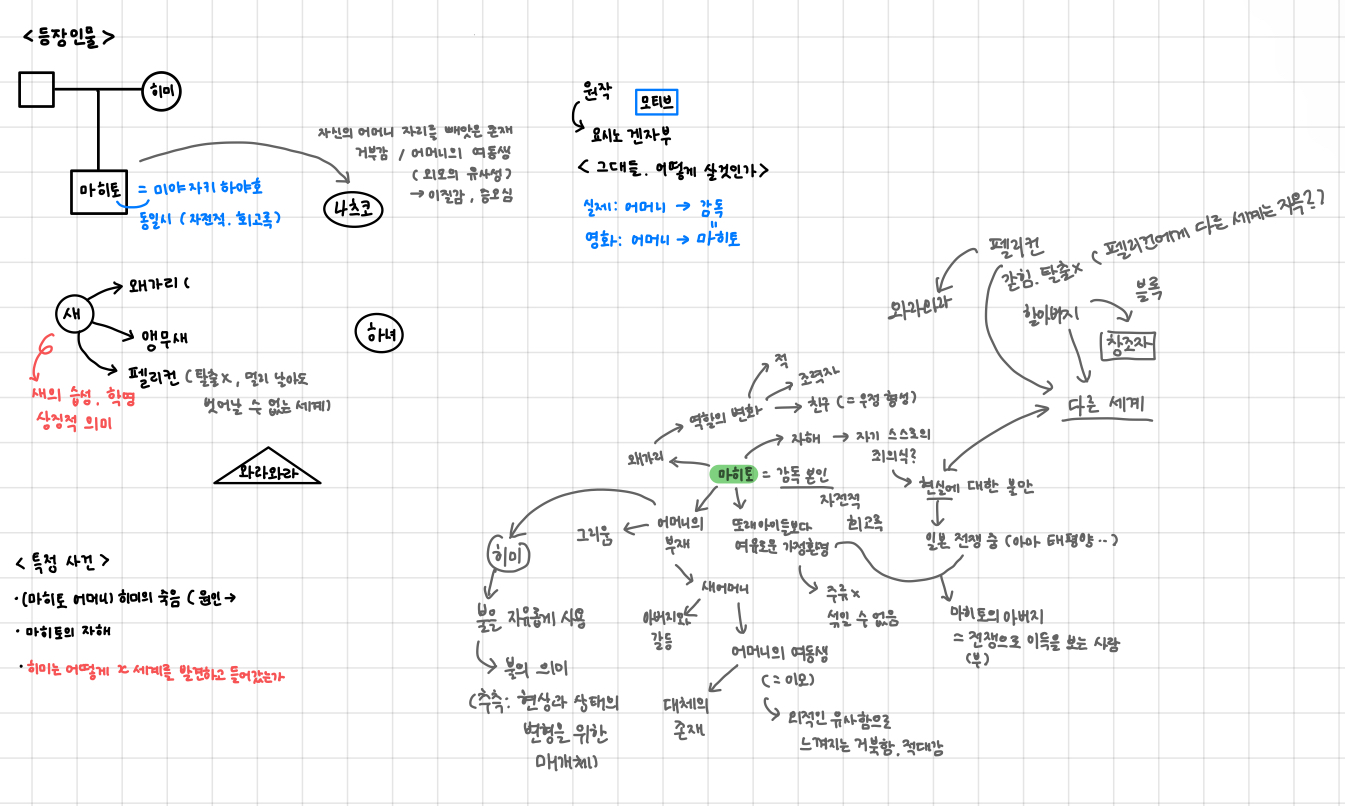 <등장인물>
히미
마히토
= 미야자키 하야호
동일시 (자전적. 회고록)
자신의 어머니 자리를 빼앗은 존재
거부감 / 어머니의 여동생
(외모의 유사성)
→ 이질감, 증오심
나츠코
원작
모티브
요시노 겐자부
< 그대들, 어떻게 살것인가>
실제: 어머니 → 감독
영화: 어머니 → 마히토
새
왜가리 (
앵무새
펠리컨 (탈출x, 멀리 날아도
벗어날 수 없는 세계)
새의 습성, 학명
상징적 의미
하녀
와라와라
<특정 사건>
· (마히토 어머니) 히미의 죽음 ( 원인 →
· 마히토의 자해
· 히미는 어떻게 이 세계를 발견하고 들어갔는가
펠리컨
갇힘. 탈출x ( 펠리컨에게 다른 세계는 지옥?)
와라와라
할아버지
블록
창조자
다른 세계
적
조력자
역할의 변화
친구 (= 우정 형성)
왜가리
자해 → 자기 스스로의
죄의식?
마히토 = 감독 본인
자전적
회고록
현실에 대한 불안
일본 전쟁 중 (아마 태평양..)
마히토의 아버지
= 전쟁으로 이득을 보는 사람
(부)
어머니의
부재
그리움
또래아이들보다
여유로운 가정환경
주류x
섞일 수 없음
히미
불을 자유롭게 사용
불의 의미
(추측: 현상과 상태의
변형을 위한
매개체)
새어머니
아버지와
갈등
어머니의 여동생
(= 이모)
대체의
존재
외적인 유사함으로
느껴지는 거북함, 적대감